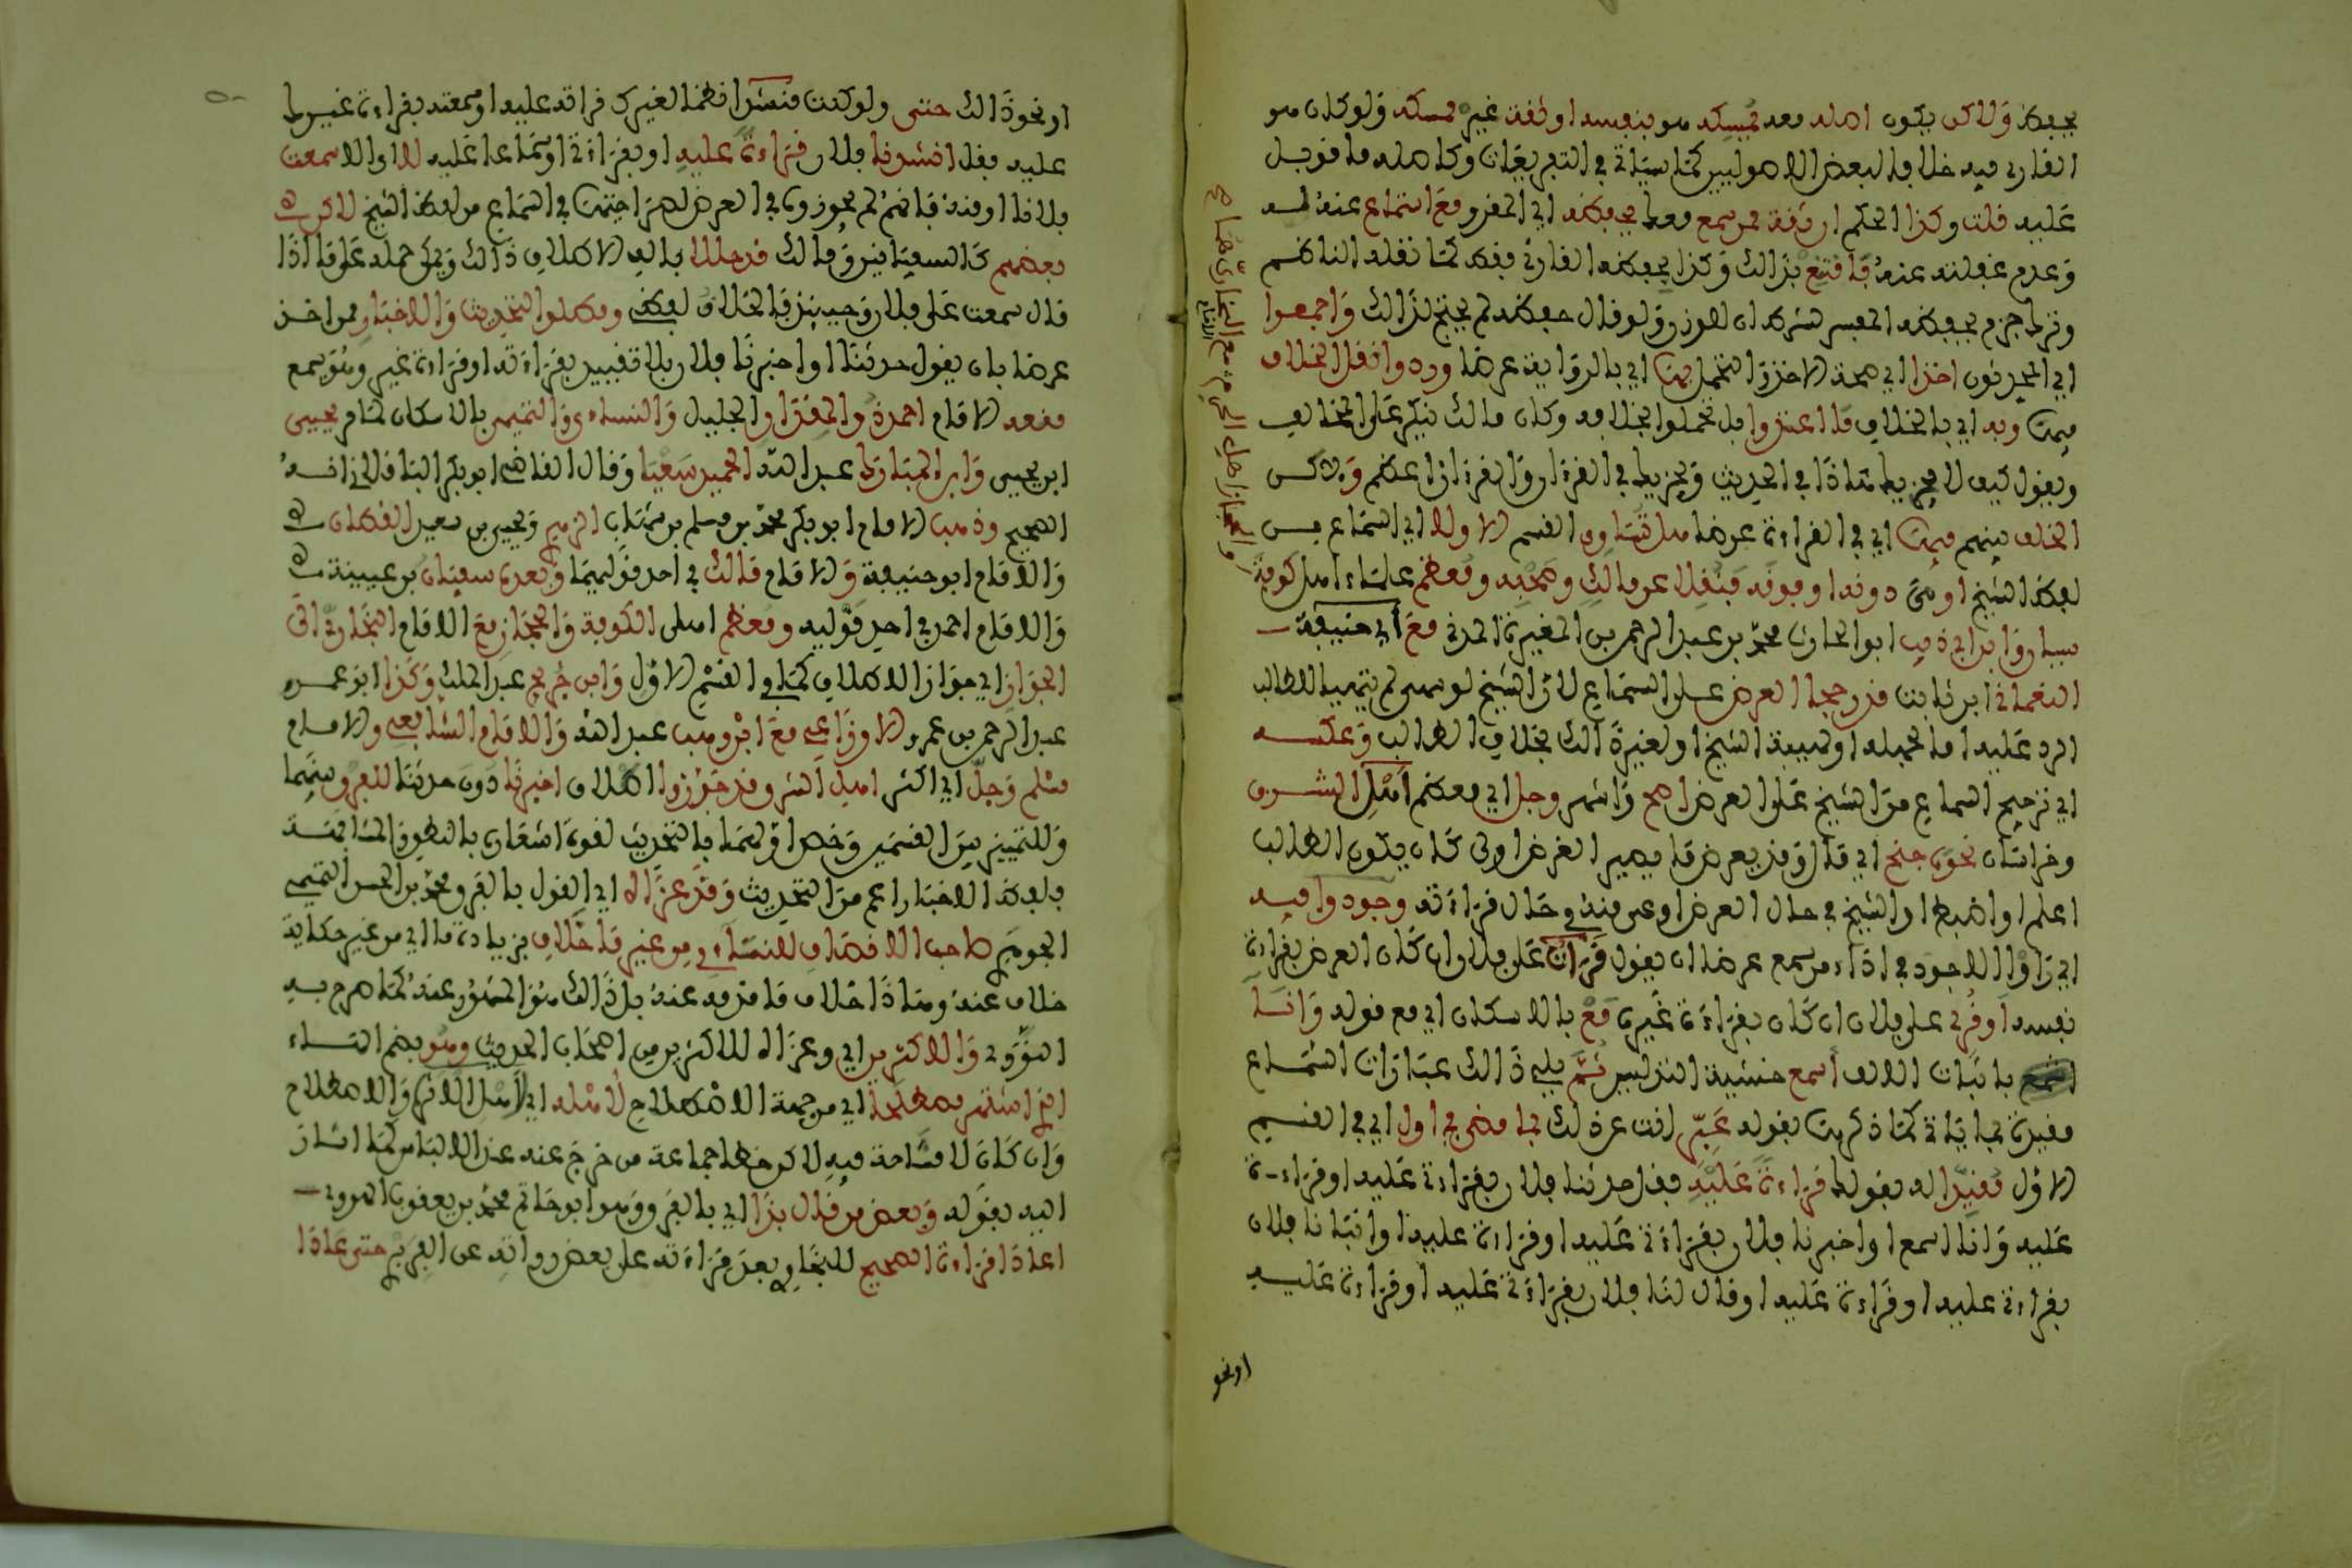 يحفظ ولاكن يكون اصله معه يمسكه هو بنفسه او ثقة غيره ممسكه ولو كان هو
القارئ فيه خلافا لبعض الاصوليين كما سياتي في التفريعات وكاصله ما قوبل
عليه قلت وكذا الحكم ان ثقة ممن سمع معك يحفظه اي المقرو مع استماع عنه له
وعدم غفلته عنه فاقتنع بذالك وكذا يحفظه القارئ فقط كما نقله الناظم
ايى المحدثون اخذا اي صحة الاخذ والتحمل بها اي بالرواية عرضا وردوا نقل الخلاف
بها وبه اي بالخلاف ما اعتدوا بل تحملوا بخلافه وكان مالك ينكر على المخالف
ويقول كيف لا يجزيك هاذا في الحديث ويجزيك في القرءان والقرءان اعظم ولاكن
الخلف بينهم فيها اي في القراءة عرضا هل تساوي القسم الاول اي السماع من
لفظ الشيخ او هي دونه او فوقه فنقلا عن مالك وصحبه ومعظم علماء اهل كوفة
وابن ابي ذيب ابو الحارث محمد بن عبد الرحمن بن المغيرة المدني مع ابي حنيفة
النعمان ابن ثابت قد رجحا العرض على السماع لان الشيخ لو سهى لم يتهيا للطالب
الرد عليه اما لجهله او لهيبة الشيخ او لغير ذالك بخلاف الطالب وعكسه
اي ترجيح السماع من الشيخ على العرض اصح واشهر وجل اي معظم اهل الشرق
وخراسان نحوه جنح اي مال وقد يعرض ما يصير العرض اولى كان يكون الطالب
اعلم او اضبط او الشيخ في حال العرض اوعى منه في حال قراءته وجودوا فيه
اي راوا الاجود في اداء من سمع عرضا ان يقول قرات على فلان ان كان العرض بقراءة
نفسه او قرئ على فلان ان كان بقراءة غيره مع بالاسكان اي مع قوله وانا
اسمع باثبات الالف اسمع خشية التدليس ثم يلي ذالك عبارات السماع
مقيدة بما ياتي كما ذكرها بقوله عبر انت عن ذلك بما مضى في اول اي في القسم
الاول مقيدا له بقولك قراءة عليه فقل حدثنا فلان بقراءة عليه او قراءة
عليه وانا اسمع او اخبرنا فلان بقراءة عليه او قراءة عليه او انبانا فلان
بقراءة عليه او قراءة عليه او قال لنا فلان بقراءة عليه او قراءة عليه
او نحو
او نحو ذالك حتى ولو كنت منشدا نظما لغيرك قراته عليه او سمعته بقراءة غيرك
عليه فقل انشدنا فلان قراءة عليه او بقراءة او سماعا عليه لا اي الا سمعت
فلانا او منه فانهم لم يجوزوه في العرض لصراحتها في السماع من لفظ الشيخ لاكن
بعضهم كالسفيانين ومالك قد حللا بالف الاطلاق ذالك ويمكن حمله على ما اذا
قال سمعت على فلان وحينئذ فالخلاف لفظي ومطلق التحديث والاخبار ممن اخذ
عرضا بان يقول حدثنا او اخبرنا فلان بلا تقييد بقراءته او قراءة غيره وهو يسمع
منعه الامام احمد ذو المقدار الجليل والنساءي والتميمي بالاسكان لما مر يحيى
ابن يحيى وابن المبارك عبد الله الحميد سعيا وقال القاضي ابو بكر الباقلاني انه
الصحيح وذهب الامام ابو بكر محمد بن مسلم بن شهاب الزهري ويحيى بن سعيد القطان
والامام ابو حنيفة والامام مالك في احد قوليهما وبعده سفيان بن عيينة
والامام احمد في احد قوليه ومعظم اهل الكوفة والحجاز مع الامام البخاري الى
الجواز اي جواز الاطلاق كما في القسم الاول وابن جريج عبد الملك وكذا ابو عمرو
عبد الرحمن بن عمرو الاوزاعي مع ابن وهب عبد الله والامام الشافعي والامام
مسلم وجل اي اكثر اهل الشرق قد جوزوا اطلاق اخبرنا دون حدثنا للفرق بينهما
وللتمييز بين القسمين وخص اولهما بالتحديث لقوة اشعاره بالنطق والمشافهة
فلفظ الاخبار اعم من التحديث وقد عزاه اي القول بالفرق محمد بن الحسن التميمي
الجوهري صاحب الانصاف للنساءي من غير ما خلاف بزيادة ما اي من غير حكاية
خلاف عنه وهاذا خلاف ما مر فيه عنه بل ذالك هو المشهور عنه كما صرح به
النووي والاكثرين اي وعزاه للاكثرين من اصحاب الحديث وهو بضم التاء
الذي اشتهر مصطلحا اي من جهة الاصطلاح لاهله اي لاهل الاثر والاصطلاح
وان كان لا مشاحة فيه لاكن خطا جماعة من خرج عنه عند الالباس كما اشار
اليه بقوله وبعض من قال بذا اي بالفرق وهو ابو حاتم محمد بن يعقوب الهروي
اعاد قراءة الصحيح للبخاري بعد قراءته على بعض رواته عن الفربري حتى عادا